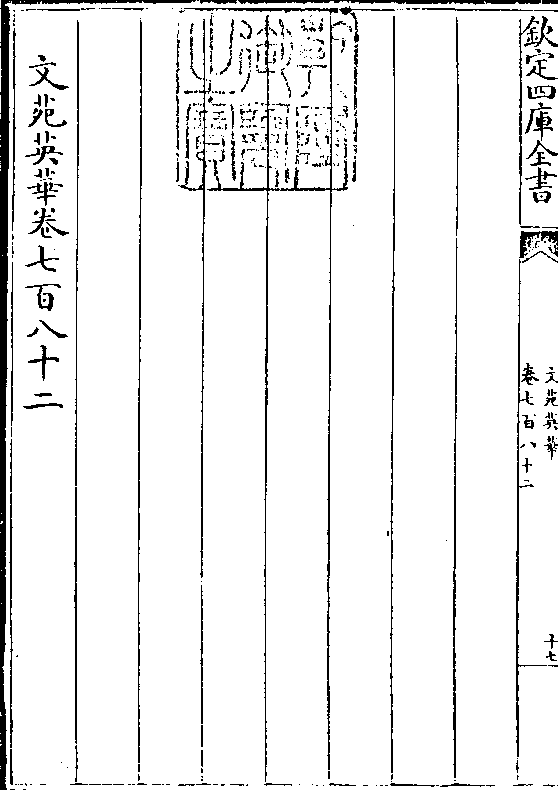 欽定四庫全書
文苑英華
卷七百八十二
十七
文苑英華卷七百八十二